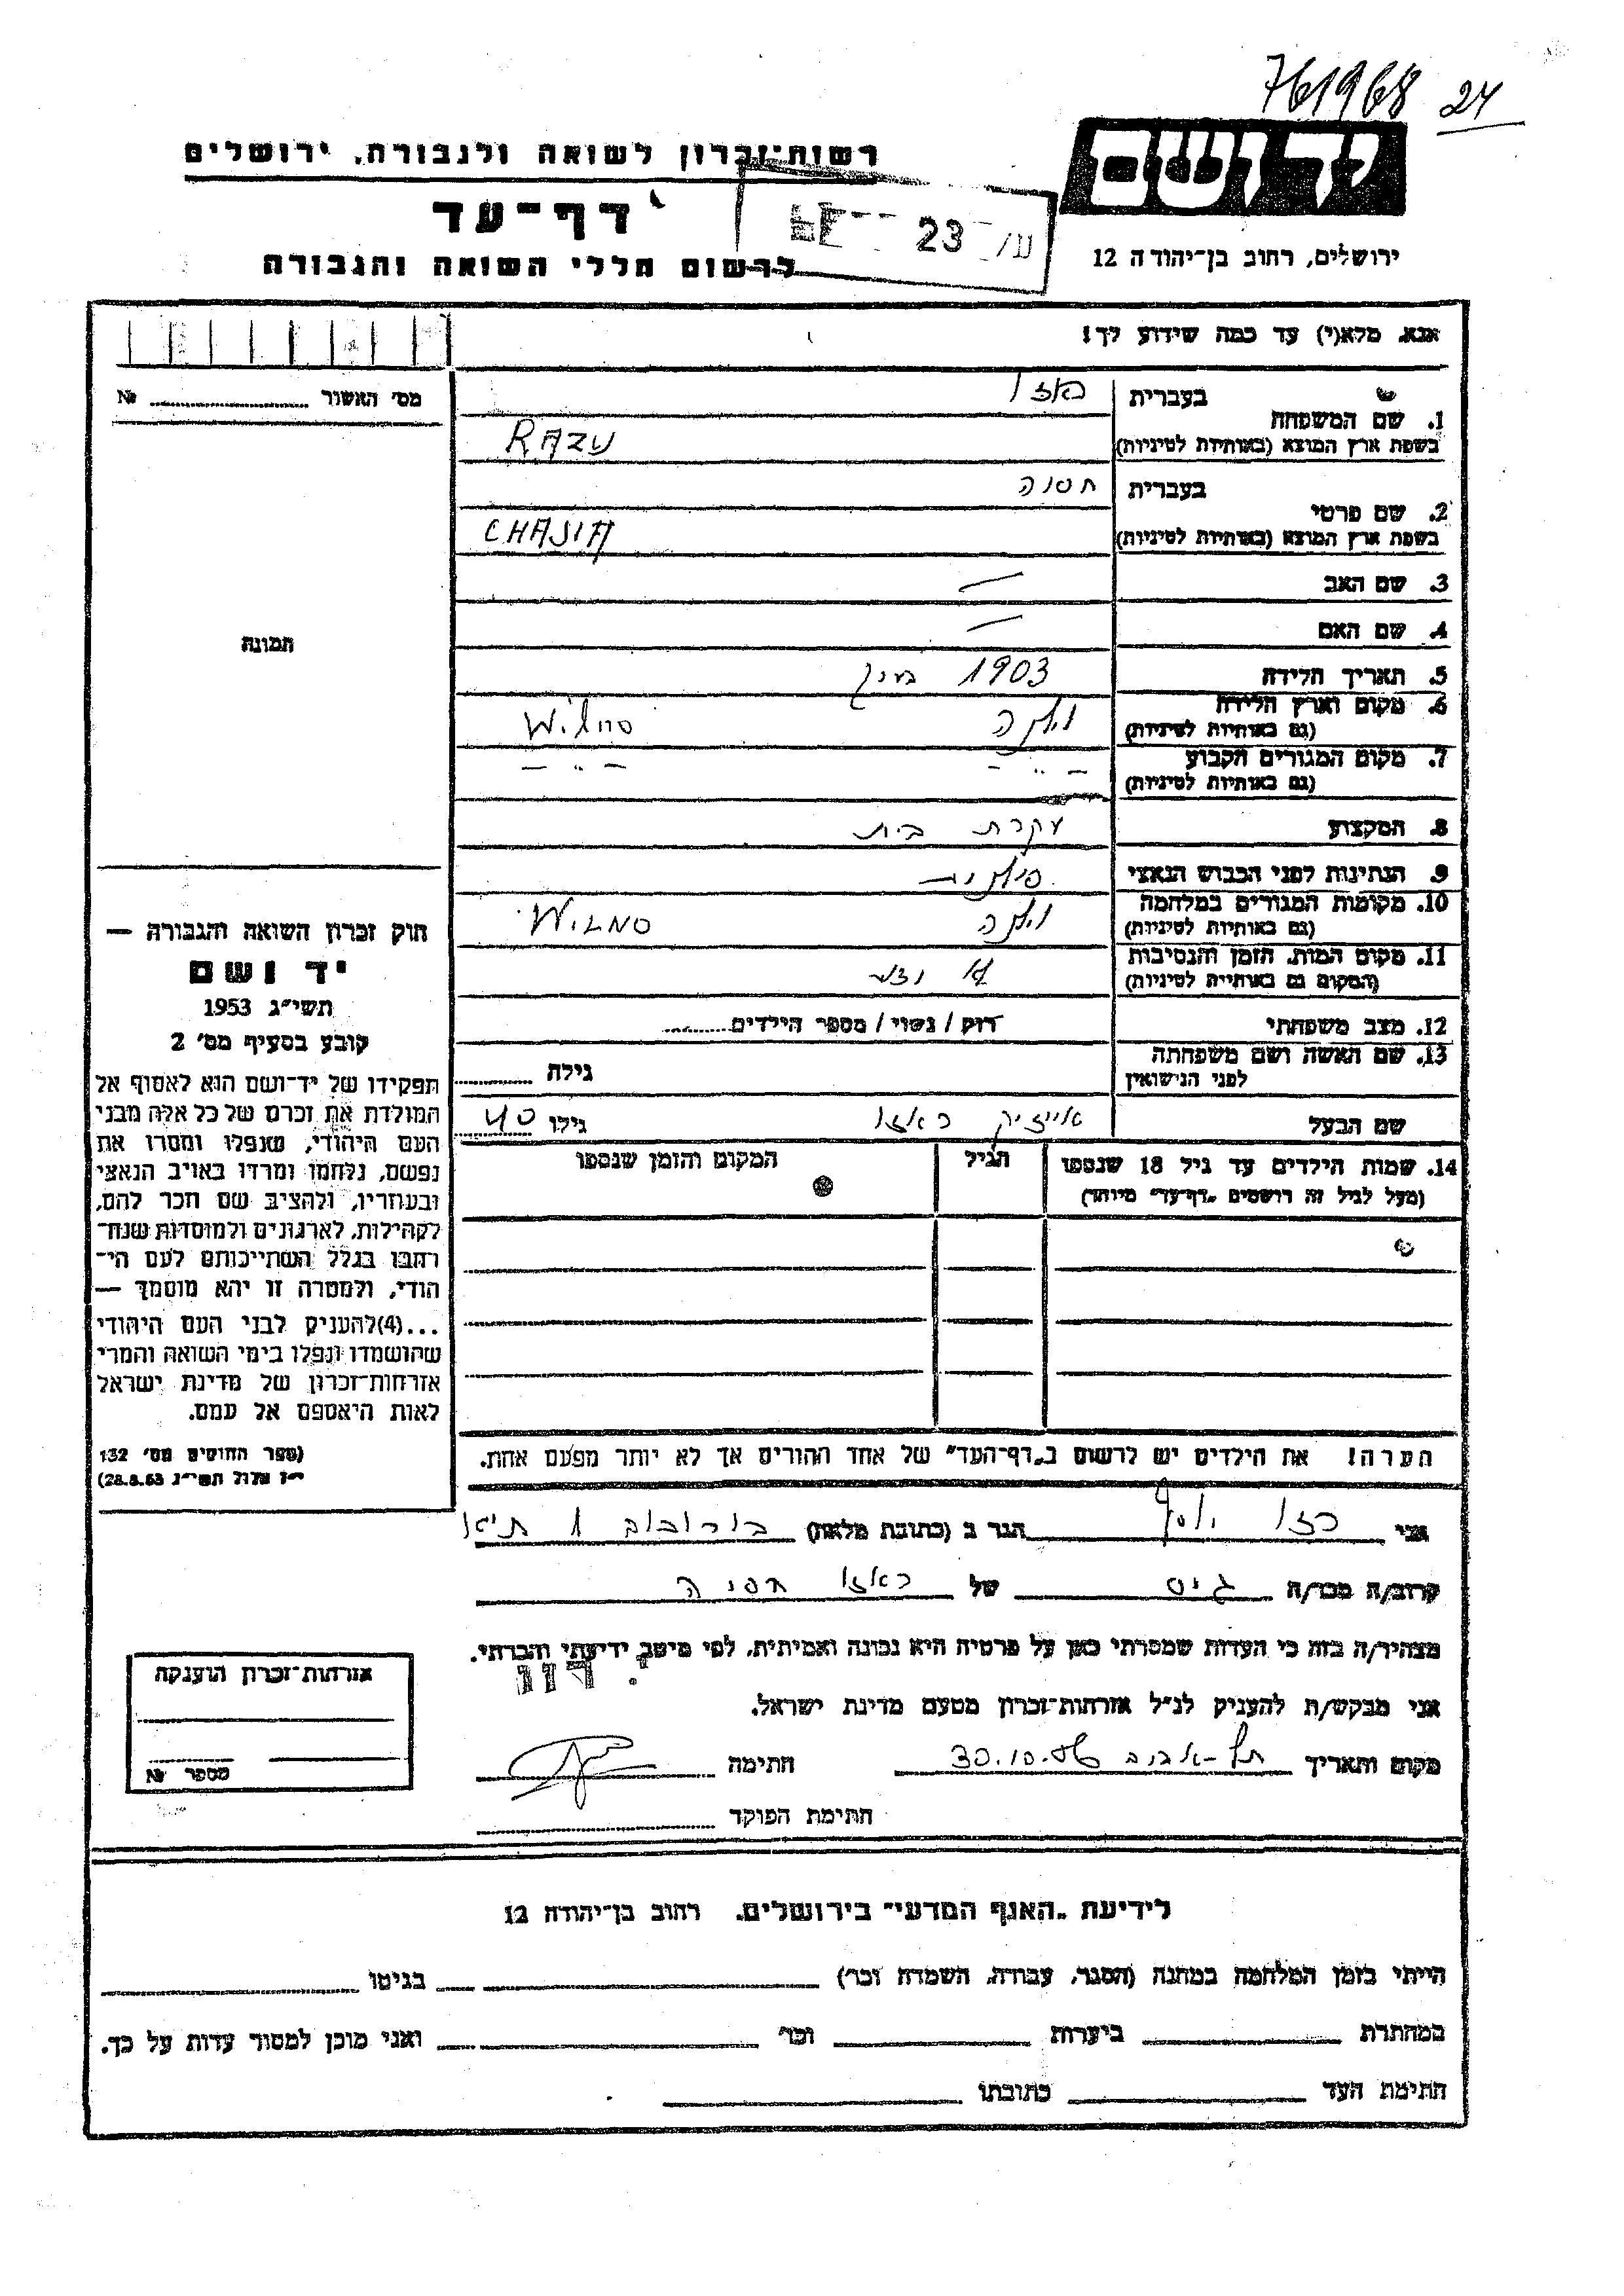 761968 24
יד ושם
רשות־זכרון לשואה ולגבורה, ירושלים
דף־עד
23
ירושלים, רחוב בן־יהודה 12
לרשום חללי השואה והגבורה
אנא, מלא(י) עד כמה שידוע לך!
מס׳ האשור № 
1. שם המשפחה
בעברית ראזו
בשפת ארץ המוצא (באותיות לטיניות) RAZU
2. שם פרטי
בעברית חסיה
בשפת ארץ המוצא (באותיות לטיניות) CHASIA
3. שם האב —
4. שם האם —
תמונה
5. תאריך הלידה 1903
6. מקום וארץ הלידה (גם באותיות לטיניות) וילנה Wilno
7. מקום המגורים הקבוע (גם באותיות לטיניות) – " – – " –
8. המקצוע עקרת בית
9. הנתינות לפני הכבוש הנאצי פולנית
10. מקומות המגורים במלחמה (גם באותיות לטיניות) וילנה WILNO
11. מקום המות, הזמן והנסיבות (המקום גם באותיות לטיניות) לא
12. מצב משפחתי רוק / נשוי / מספר הילדים
13. שם האשה ושם משפחתה לפני הנישואין גילה
שם הבעל אייזיק ראזו גילו 40
14. שמות הילדים עד גיל 18 שנספו הגיל המקום והזמן שנספו
(מעל לגיל זה רושמים „דף־עד״ מיוחד)
חוק זכרון השואה והגבורה —
יד ושם
תשי״ג 1953
קובע בסעיף מס׳ 2
תפקידו של יד־ושם הוא לאסוף אל
המולדת את זכרם של כל אלה מבני
העם היהודי, שנפלו ומסרו את
נפשם, נלחמו ומרדו באויב הנאצי
ובעוזריו, ולהציב שם וזכר להם,
לקהילות, לארגונים ולמוסדות שנח־
רבו בגלל השתייכותם לעם הי־
הודי, ולמטרה זו יהא מוסמך —
...(4)להעניק לבני העם היהודי
שהושמדו ונפלו בימי השואה והמרי
אזרחות־זכרון של מדינת ישראל
לאות היאספם אל עמם.
(ספר החוקים מס׳ 132
י״ז אלול תשי״ג 28.8.53)
הערה! את הילדים יש לרשום ב„דף־העד״ של אחד ההורים אך לא יותר מפעם אחת.
אני רזו יוסף הגר ב (כתובת מלאה) בורוכוב 1
קרוב/ה מכר/ה גיס של ראזו חסיה
מצהיר/ה בזה כי העדות שמסרתי כאן על פרטיה היא נכונה ואמיתית, לפי מיטב ידיעתי והכרתי.
אני מבקש/ת להעניק לנ״ל אזרחות־זכרון מטעם מדינת ישראל.
מקום ותאריך תל-אביב 30.10.56 חתימה
חתימת הפוקד
אזרחות־זכרון הוענקה
מספר №
לידיעת „האגף המדעי״ בירושלים, רחוב בן־יהודה 12
הייתי בזמן המלחמה במחנה (הסגר, עבודה, השמדה וכו׳) בגיטו
במחתרת ביערות וכו׳ ואני מוכן למסור עדות על כך.
חתימת העד כתובתו